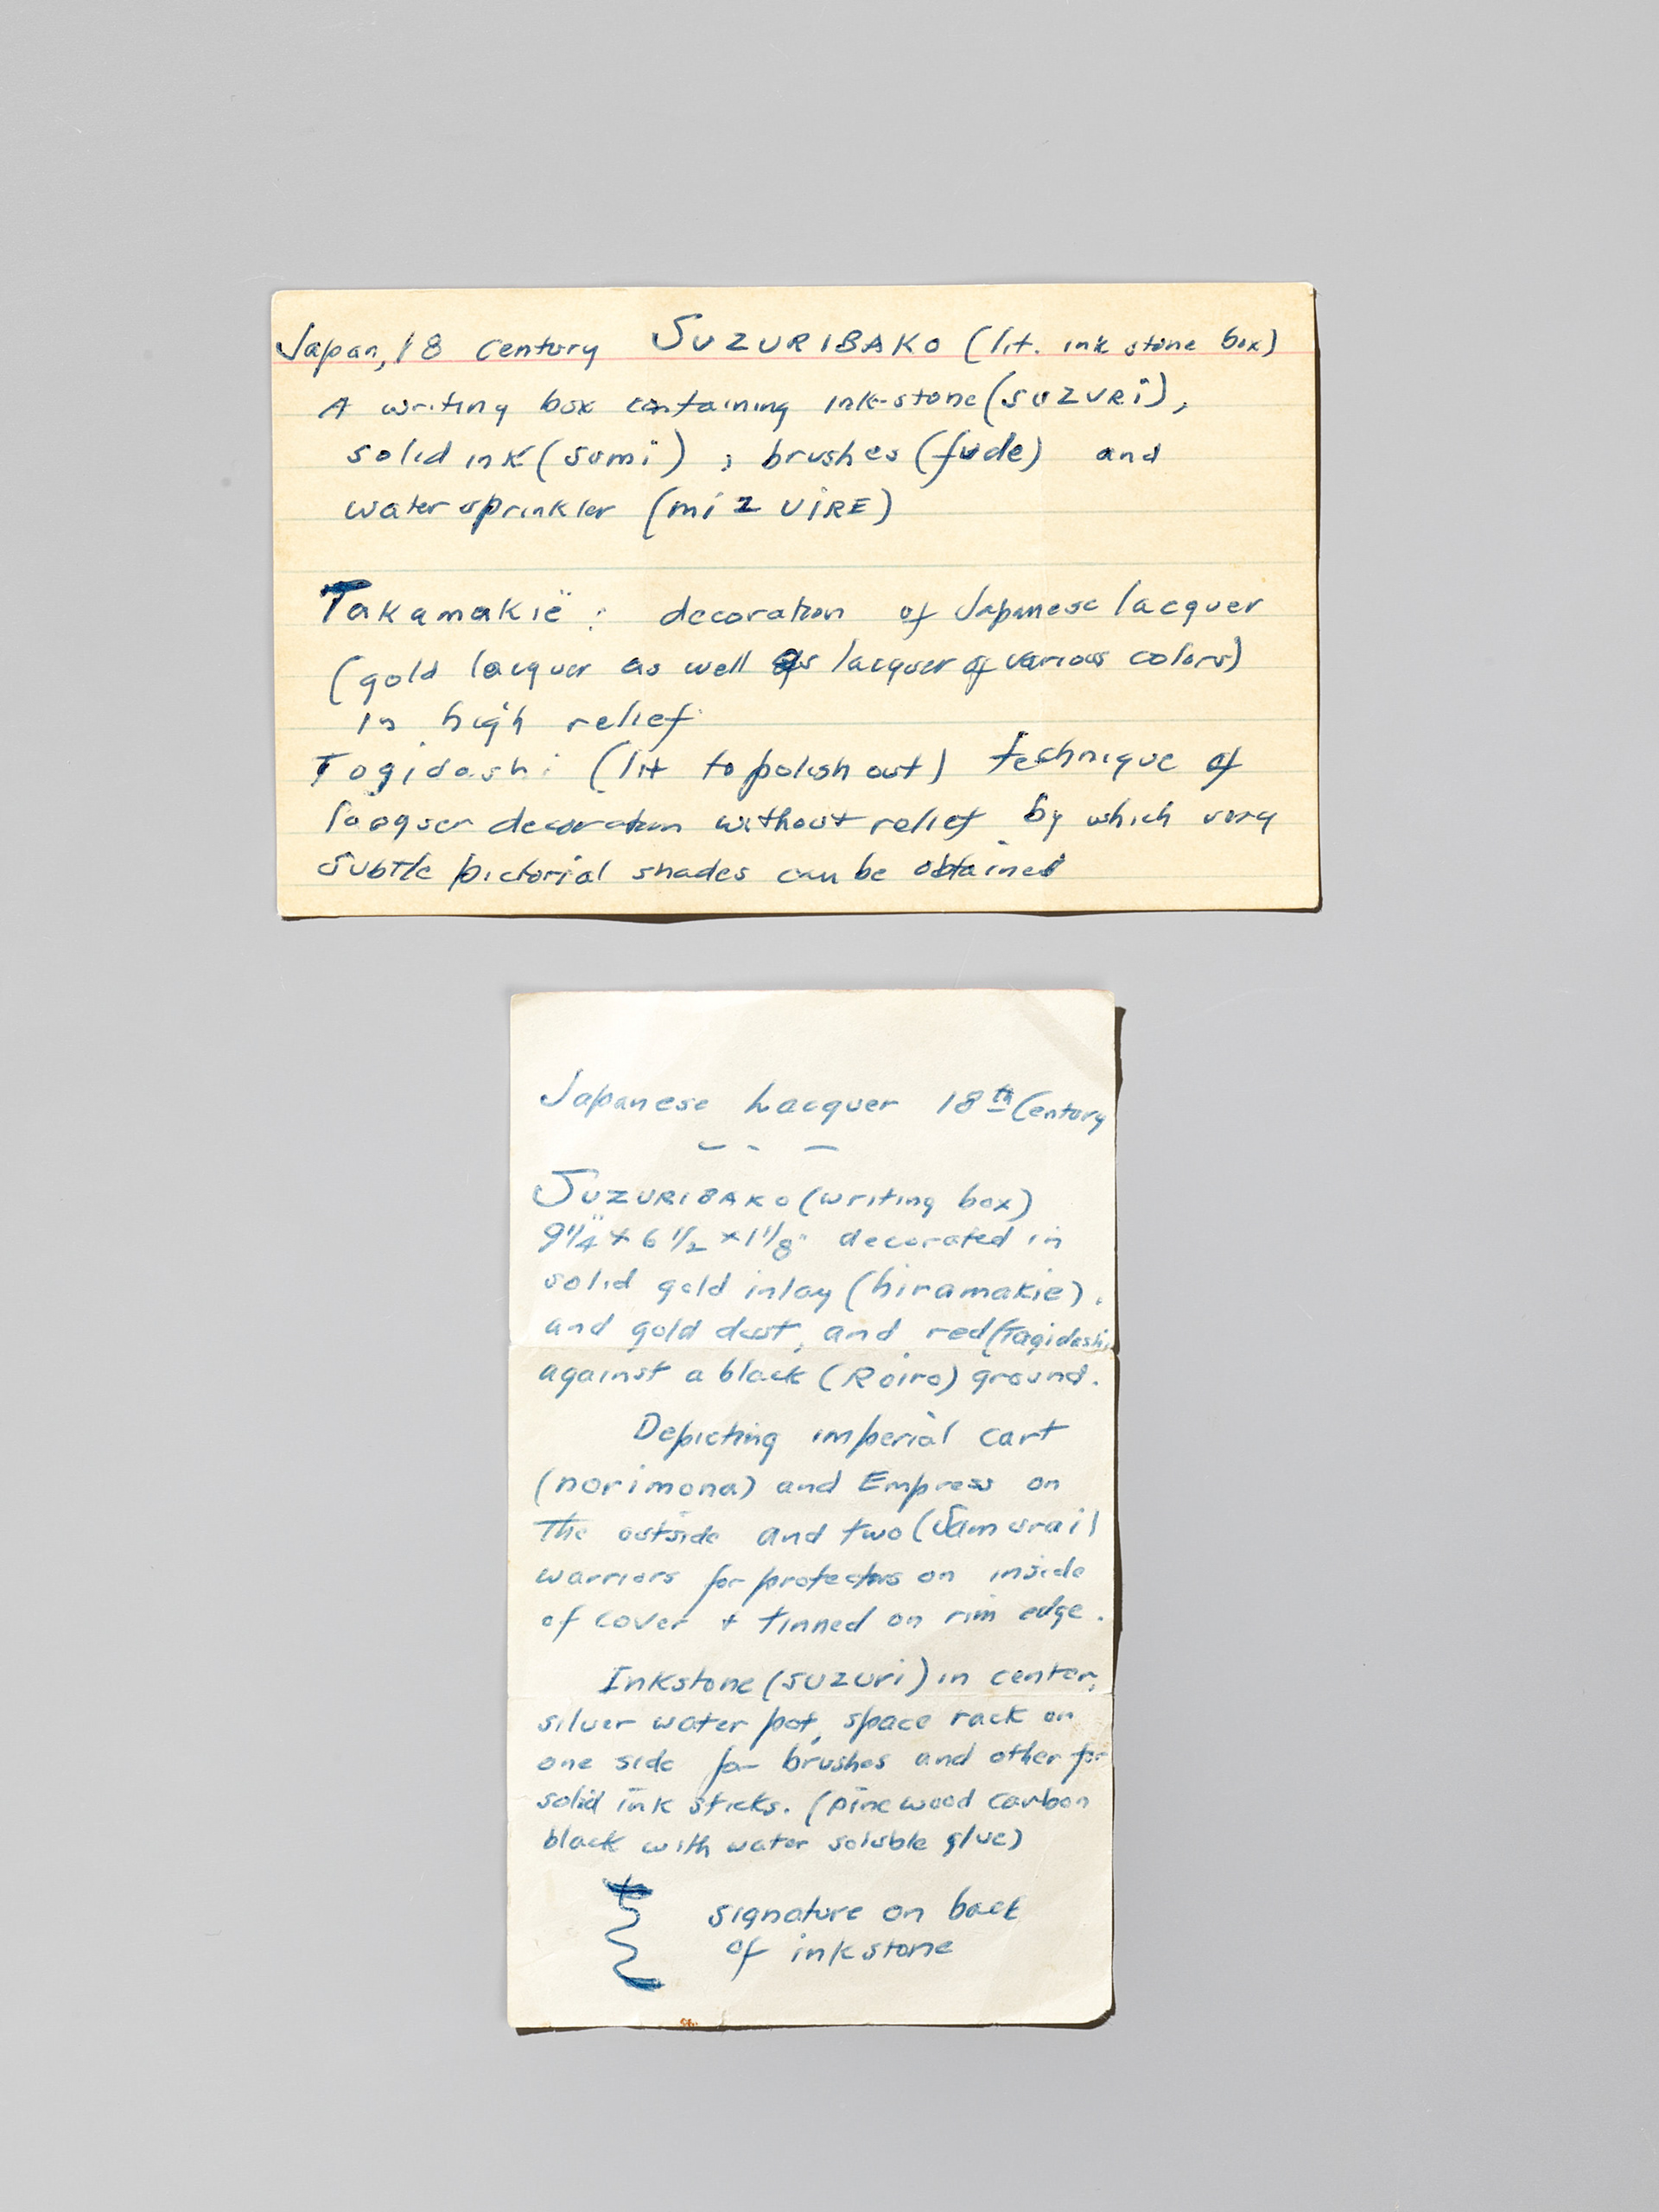 Japan, 18 century SUZURIBAKO (lit. ink stone box)
A writing box containing ink-stone (SUZURI),
solid ink (sumi) ; brushes (fude) and
water sprinkler (mizuiRE)
Takamakië : decoration of Japanese lacquer
(gold lacquer as well as lacquer of various colors)
in high relief.
Togidashi (lit to polish out) technique of
lacquer decoration without relief by which very
subtle pictorial shades can be obtained
Japanese Lacquer 18th Century
SUZURIBAKO (writing box)
9 1/4" x 6 1/2 x 1 1/8" decorated in
solid gold inlay (hiramakie).
and gold dust, and red (Tagidashi)
against a black (Roiro) ground.
Depicting imperial cart
(norimona) and Empress on
The outside and two (Samurai)
warriors for protectors on inside
of cover + tinned on rim edge.
Inkstone (suzuri) in center,
silver water pot, space rack on
one side for brushes and other for
solid ink sticks. (pine wood carbon
black with water soluble glue)
signature on back
of inkstone